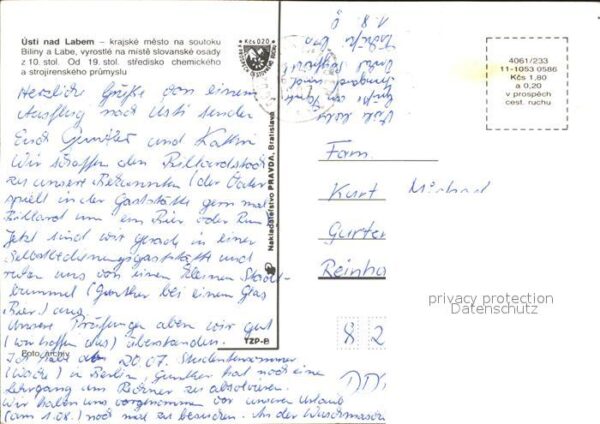 Ústí nad Labem – krajské město na soutoku
Bíliny a Labe, vyrostlé na místě slovanské osady
z 10. stol. Od 19. stol. středisko chemického
a strojírenského průmyslu
Kčs 0,20
4061/233
11-1053 0586
Kčs 1,80
a 0,20
v prospěch
cest. ruchu
Herzliche Grüße von einem
Ausflug nach Usti senden
Euch Gunther und Kathri
Wir schaffen den Billardstock
zu unsere Bekannten (der Vater
spielt in der Gaststätte gern mal
Billard um ein Bier oder Rum)
Jetzt sind wir gerade in einer
Selbstbedienungsgaststätte und
ruhen uns von einem kleinen Stadt-
bummel (Gunther bei einem Glas
Bier) aus
Unsere Prüfungen haben wir gut
(wir hoffen das) überstanden.
Ich habe ab 20.07. Studentensommer
(Woche) in Berlin, Gunther hat noch eine
Lehrgang zu absolvieren.
Wir haben uns vorgenommen vor unseren Urlaub
(am 1.08.) noch mal zu besuchen. An der
Nakladatelstvo PRAVDA, Bratislava
TZP-B
Foto: Archív
Fam.
Kurt Michael
Garten
Reinha
privacy protection
Datenschutz
8 2
DD